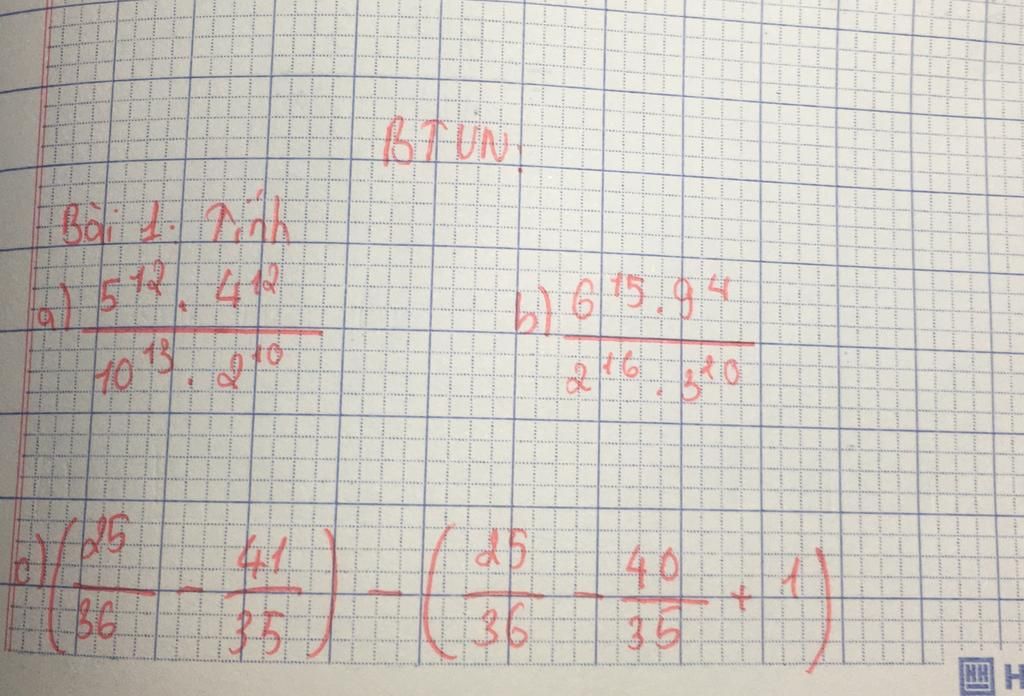 BTVN.
Bài 1. Tính
a) \frac{5^{12} . 4^{12}}{10^{13} . 2^{10}} b) \frac{6^{15} . 9^{4}}{2^{16} . 3^{20}}
c) \left(\frac{25}{36} - \frac{41}{35}\right) - \left(\frac{25}{36} - \frac{40}{35} + 1\right)
HH H